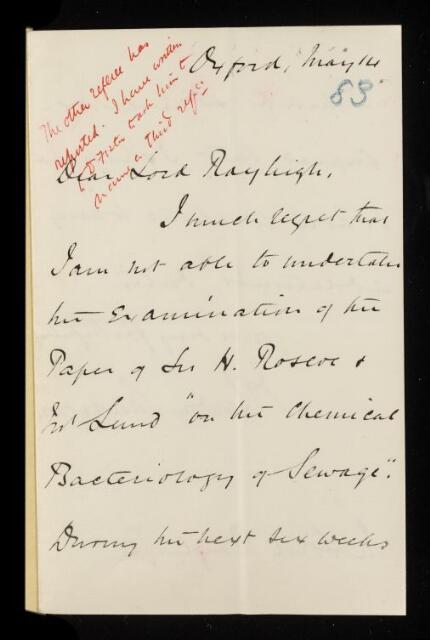 The other referee has
reported. I have written
to Foster to ask him to
name a third ref:
Oxford, May 14
83
Dear Lord Rayleigh,
I much regret that
I am not able to undertake
the Examination of the
Paper of Sir H. Roscoe &
Mr Lund "on the Chemical
Bacteriology of Sewage".
During the next six weeks